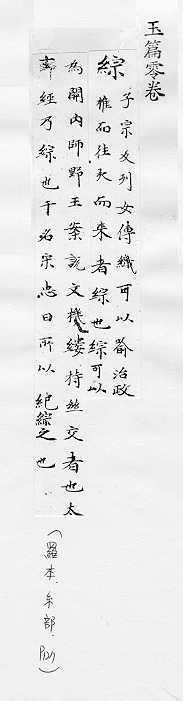 玉篇零卷
綜 子宗反列女傳織可以喻治政
推而往
而來者綜也綜可以
為開內師野王案說文機縷持絲交者也太
玄經乃綜也于名宋忠曰所以紀綜之也
（羅本．糸部．